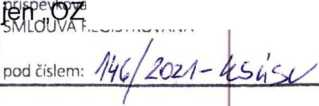 jen „OZ
SMLOUVA REGISTROVÁNA
pod číslem: 146/2021-KSÚSV